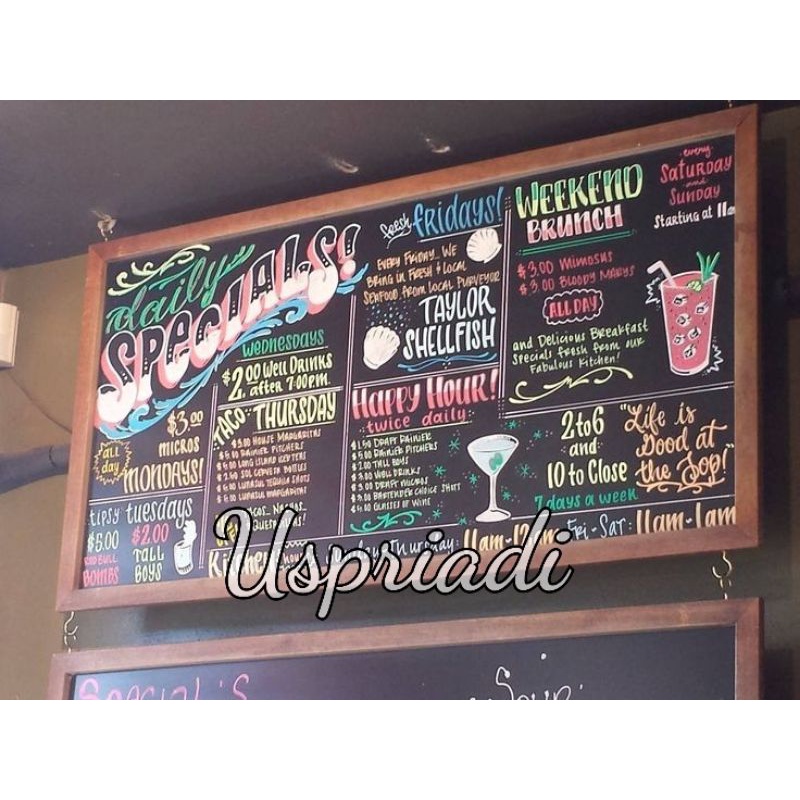 daily
SPECIALS!
all
day
$3.00
MICROS
MONDAYS!
tipsy tuesdays
$5.00
RED BULL
BOMBS
$2.00
TALL
BOYS
WEDNESDAYS
$2.00 WELL DRINKS
after 7:00PM.
TACO THURSDAY
$3.00 HOUSE MARGARITAS
$5.00 RAINIER PITCHERS
$5.00 LONG ISLAND ICE TEAS
$2.50 SOL CERVEZA BOTTLES
$5.00 LUNASUL TEQUILA SHOTS
$6.00 LUNASUL MARGARITAS
fresh fridays!
EVERY FRIDAY... WE
BRING IN FRESH & LOCAL
SEAFOOD FROM LOCAL PURVEYOR
TAYLOR
SHELLFISH
HAPPY HOUR!
twice daily
$1.50 DRAFT RAINIER
$5.00 RAINIER PITCHERS
$2.00 TALL BOYS
$3.00 WELL DRINKS
$3.00 DRAFT MICROS
$3.00 BARTENDER CHOICE SHOTS
$4.00 GLASSES OF WINE
WEEKEND
BRUNCH
every
SATURDAY
and
SUNDAY
Starting at 11a
$3.00 MIMOSAS
$3.00 BLOODY MARYS
ALL DAY
and Delicious Breakfast
Specials fresh from our
Fabulous Kitchen!
2 to 6
and
10 to Close
7 days a week
"Life is
Good at
the Top!"
Kitchen 11am-12am Fri-Sat: 11am-1am
Uspriadi
SPECIAL'S
Soup: